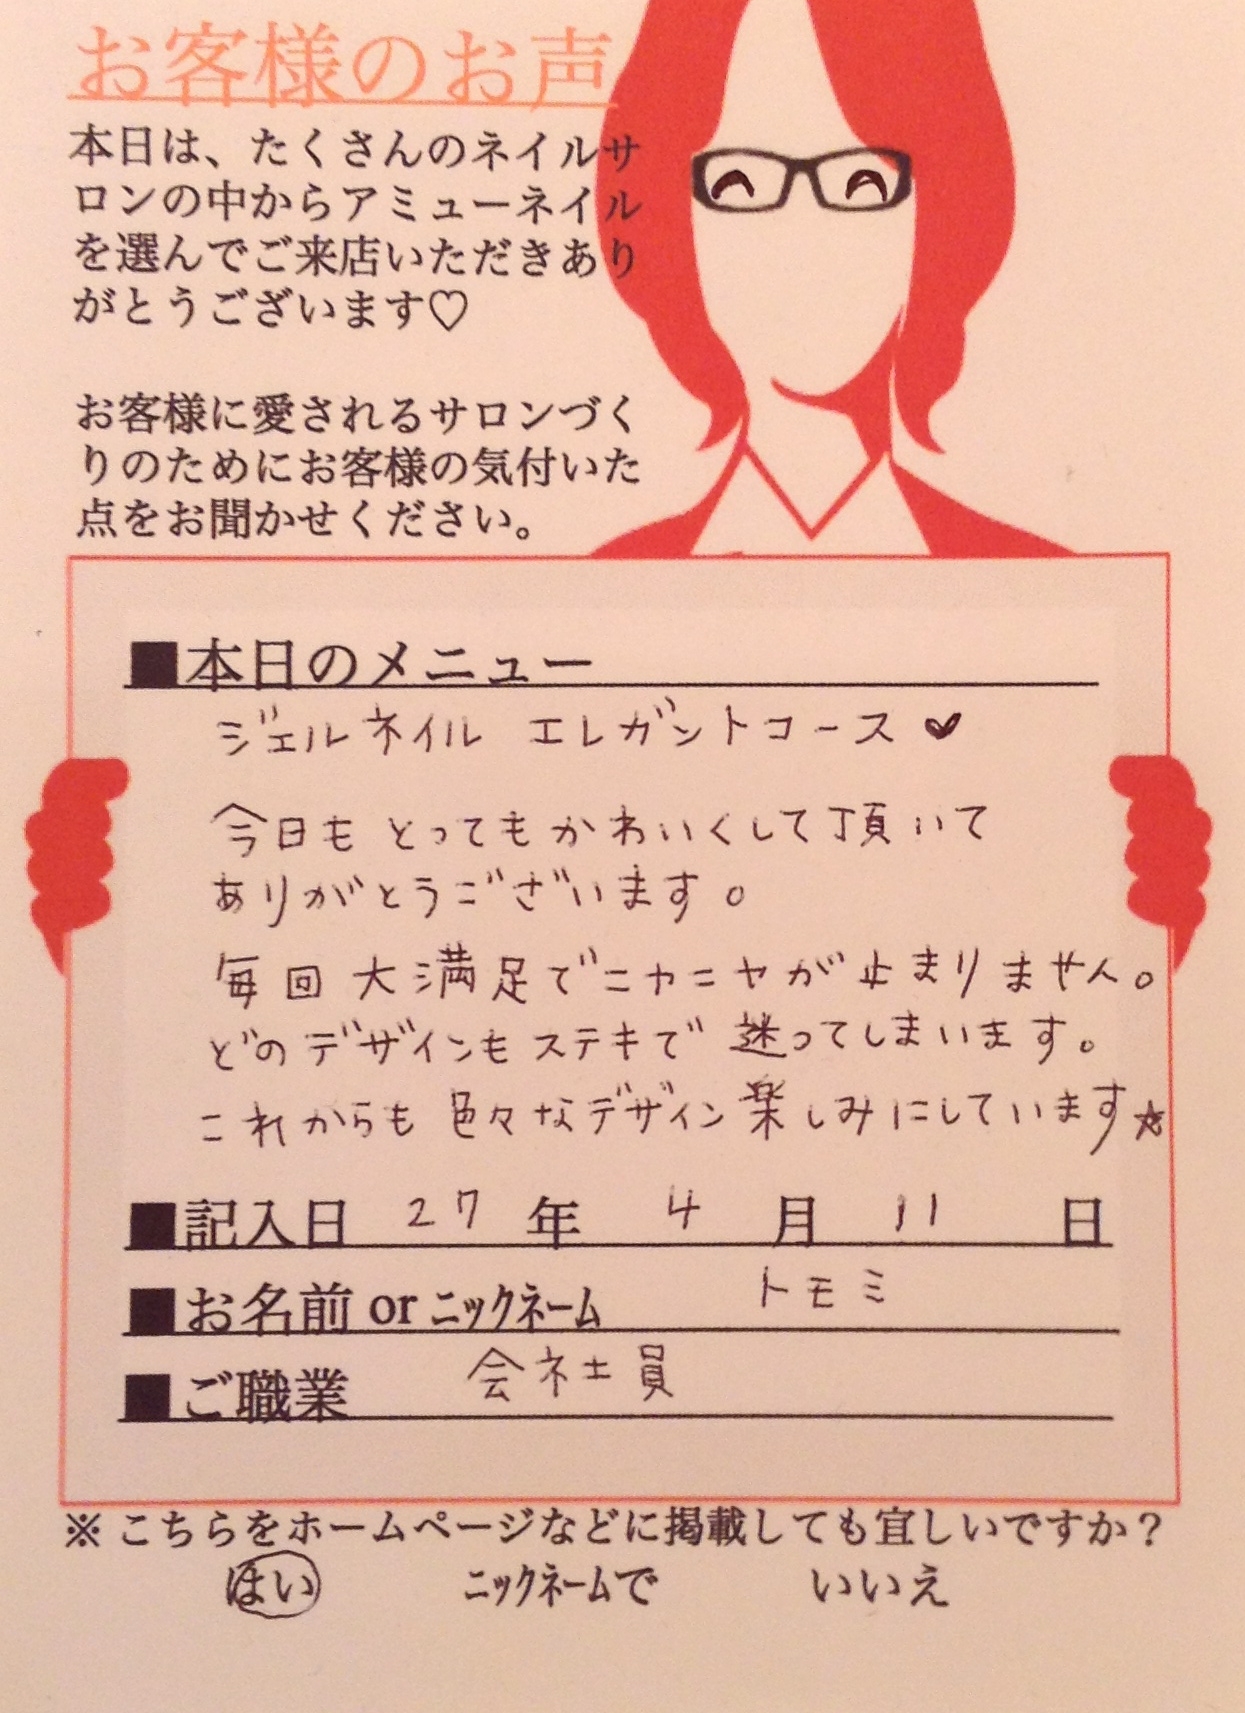 お客様のお声
本日は、たくさんのネイルサ
ロンの中からアミューネイル
を選んでご来店いただきあり
がとうございます♡
お客様に愛されるサロンづく
りのためにお客様の気付いた
点をお聞かせください。
■本日のメニュー
ジェルネイル エレガントコース♥
今日もとってもかわいくして頂いて
ありがとうございます。
毎回大満足でニヤニヤが止まりません。
どのデザインもステキで迷ってしまいます。
これからも色々なデザイン楽しみにしています☆
■記入日 27年 4月 11日
■お名前orニックネーム トモミ
■ご職業 会社員
※こちらをホームページなどに掲載しても宜しいですか？
はい ニックネームで いいえ